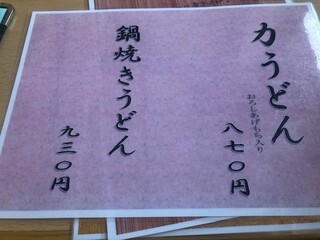 力うどん
おろしあげもち入り
八七〇円
鍋焼きうどん
九三〇円